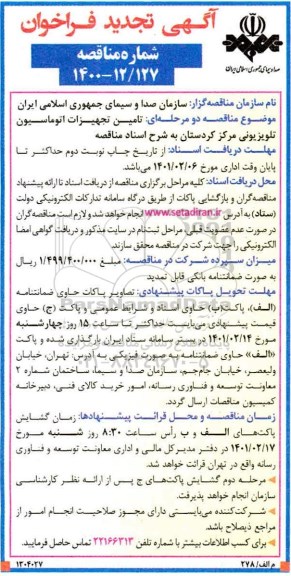 آگهی تجدید فراخوان
شماره مناقصه
۱۴۰۰-۱۲/۱۲۷
صدا و سیمای جمهوری اسلامی ایران
نام سازمان مناقصه‌گزار: سازمان صدا و سیمای جمهوری اسلامی ایران
موضوع مناقصه دو مرحله‌ای: تامین تجهیزات اتوماسیون
تلویزیونی مرکز کردستان به شرح اسناد مناقصه
مهلت دریافت اسناد: از تاریخ چاپ نوبت دوم حداکثر تا
پایان وقت اداری مورخ ۱۴۰۱/۰۲/۰۶ می‌باشد.
محل دریافت اسناد: کلیه مراحل برگزاری مناقصه از دریافت اسناد تا ارائه پیشنهاد
مناقصه‌گران و بازگشایی پاکات از طریق درگاه سامانه تدارکات الکترونیکی دولت
(ستاد) به آدرس www.setadiran.ir انجام خواهد شد و لازم است مناقصه‌گران
در صورت عدم عضویت قبلی مراحل ثبت‌نام در سایت مذکور و دریافت گواهی امضا
الکترونیکی را جهت شرکت در مناقصه محقق سازند
میزان سپرده شرکت در مناقصه: مبلغ ۱/۴۹۹/۴۰۰/۰۰۰ ریال
به صورت ضمانتنامه بانکی قابل تمدید
مهلت تحویل پاکات پیشنهادی: تصاویر پاکات حاوی ضمانتنامه
(الف)، پاکت(ب) حاوی اسناد و شرایط عمومی و پاکت (ج) حاوی
قیمت پیشنهادی می‌بایست حداکثر تا ساعت ۱۵ روز چهارشنبه
مورخ ۱۴۰۱/۰۲/۱۴ در بستر سامانه ستاد ایران بارگذاری شده و پاکت
«الف» حاوی ضمانتنامه به صورت فیزیکی به آدرس: تهران، خیابان
ولیعصر، خیابان جام‌جم، سازمان صدا و سیما، ساختمان شماره ۲
معاونت توسعه و فناوری رسانه، امور خرید کالای فنی، دبیرخانه
کمیسیون مناقصات ارسال گردد.
زمان مناقصه و محل قرائت پیشنهادها: زمان گشایش
پاکت‌های الف و ب رأس ساعت ۸:۳۰ روز شنبه مورخ
۱۴۰۱/۰۲/۱۷ در دفتر مدیرکل مالی و اداری معاونت توسعه و فناوری
رسانه واقع در تهران قرائت خواهد شد.
مرحله دوم گشایش پاکت‌های ج پس از ارائه نظر کارشناسی
سازمان انجام خواهد پذیرفت.
شرکت‌کننده می‌بایستی دارای مجوز صلاحیت انجام امور از
مراجع ذیصلاح باشد.
برای کسب اطلاعات بیشتر با شماره تلفن ۲۲۱۶۶۳۱۳ تماس حاصل فرمایید.
م الف/ ۲۷۸
۱۳۰۴۰۲۷